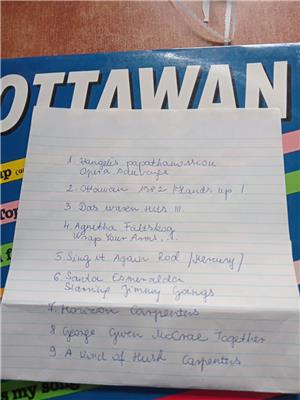 OTTAWAN
1 Vangelis papathanassiou
Opera sauvage
2. Ottawan 1982 Hands up!
3. Das waren Hits III.
4. Agnetha Fältskog
Wrap Your Arms...
5 Sing it Again Rod (Mercury)
6. Santa Esmeralda
Starring Jimmy Goings
7. Horizon Carpenters
8 George Gwen McCrae Together
9. A Kind of Hush Carpenters
is my song